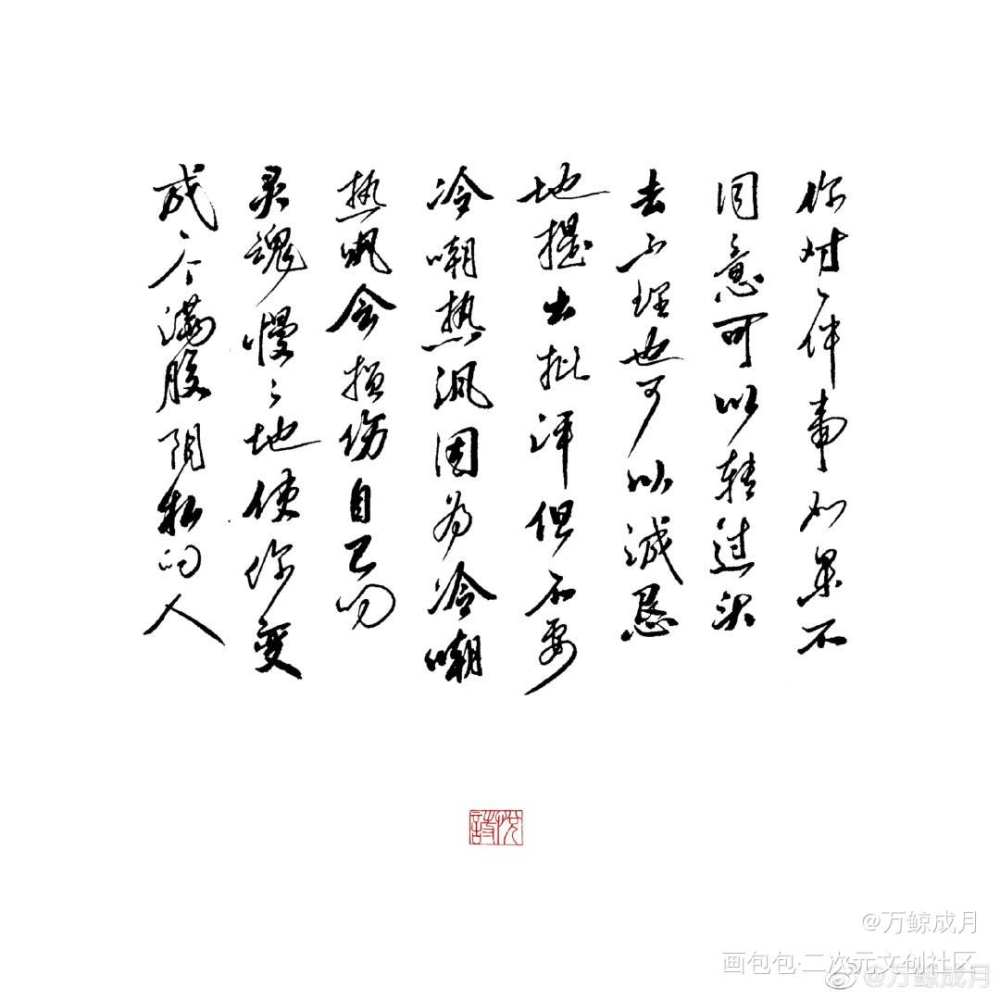 你对一件事如果不
同意可以转过头
去不理也可以诚恳
地提出批评但不要
冷嘲热讽因为冷嘲
热讽会损伤自己的
灵魂慢慢地使你变
成一个满腹阴私的人
@万鲸成月
画包包·二次元文创社区
@万鲸成月